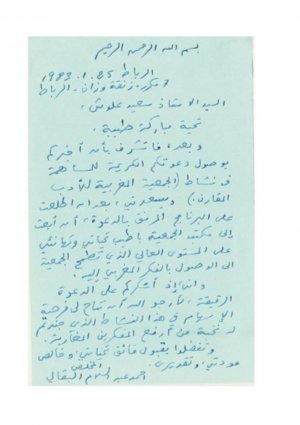 بسم الله الرحمن الرحيم
الرباط 25. 1. 1983
7 مكرر - زنقة وزان - الرباط
السيد الأستاذ سعيد علوش،
تحية مباركة طيبة،
وبعد، فأتشرف بأن أخبركم
بوصول دعوتكم الكريمة للمساهمة
في نشاط (الجمعية المغربية للأدب
المقارن). ويسعدني، بعد أن اطلعت
على البرنامج المرفق بالدعوة، أن أبعث
إلى مكتب الجمعية بأطيب تحياتي وتهانئي
على المستوى العالي الذي تطمح الجمعية
إلى الوصول بالفكر المغربي إليه.
وإنني إذ أشكركم على الدعوة
الرقيقة، لأرجو الله أن تتاح لي فرصة
الإسهام في هذا النشاط الذي جندتم
له نخبة من أرفع المفكرين المغاربة.
وتفضلوا بقبول فائق تحياتي، وخالص
مودتي، وتقديري.
المخلص
أحمد عبد السلام البقالي